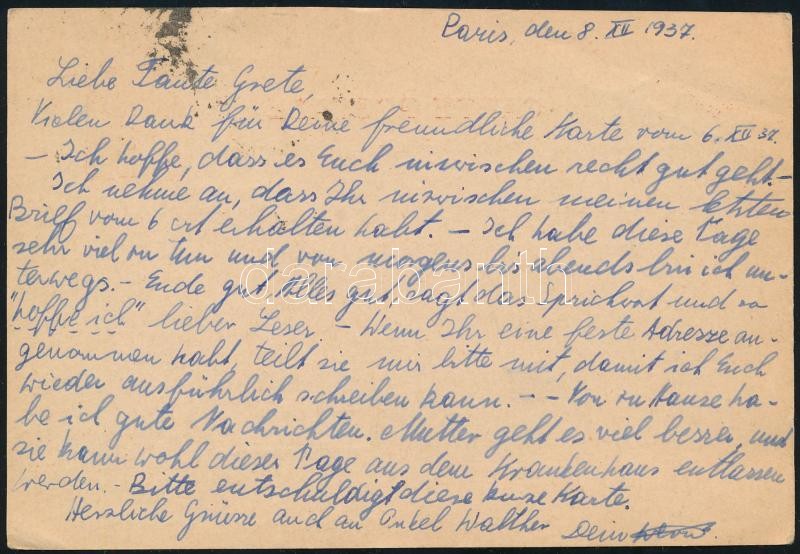 Paris, den 8. XII 1937.
Liebe Tante Grete,
Vielen Dank für Deine freundliche Karte vom 6. XII 37.
– Ich hoffe, dass es Euch inzwischen recht gut geht. –
Ich nehme an, dass Ihr inzwischen meinen letzten
Brief vom 6 crt erhalten habt. – Ich habe diese Tage
sehr viel zu tun und von morgens bis abends bin ich un-
terwegs. – Ende gut Alles gut, sagt das Sprichwort und so
"hoffe ich" lieber Leser. – Wenn Ihr eine feste Adresse an-
genommen habt, teilt sie mir bitte mit, damit ich Euch
wieder ausführlich schreiben kann. – – Von zu Hause ha-
be ich gute Nachrichten. Mutter geht es viel besser, und
sie kann wohl dieser Tage aus dem Krankenhaus entlassen
werden. – Bitte entschuldigt diese kurze Karte.
Herzliche Grüsse auch an Onkel Walther Dein
darabanth